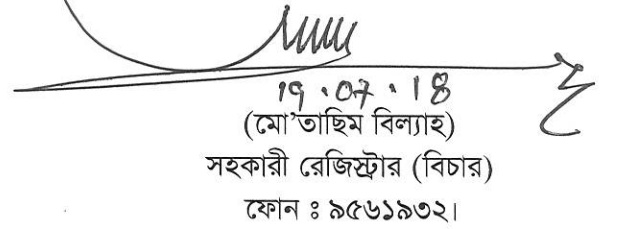 19.07.18
(মো'তাছিম বিল্যাহ)
সহকারী রেজিস্ট্রার (বিচার)
ফোন ঃ ৯৫৬১৯৩২।